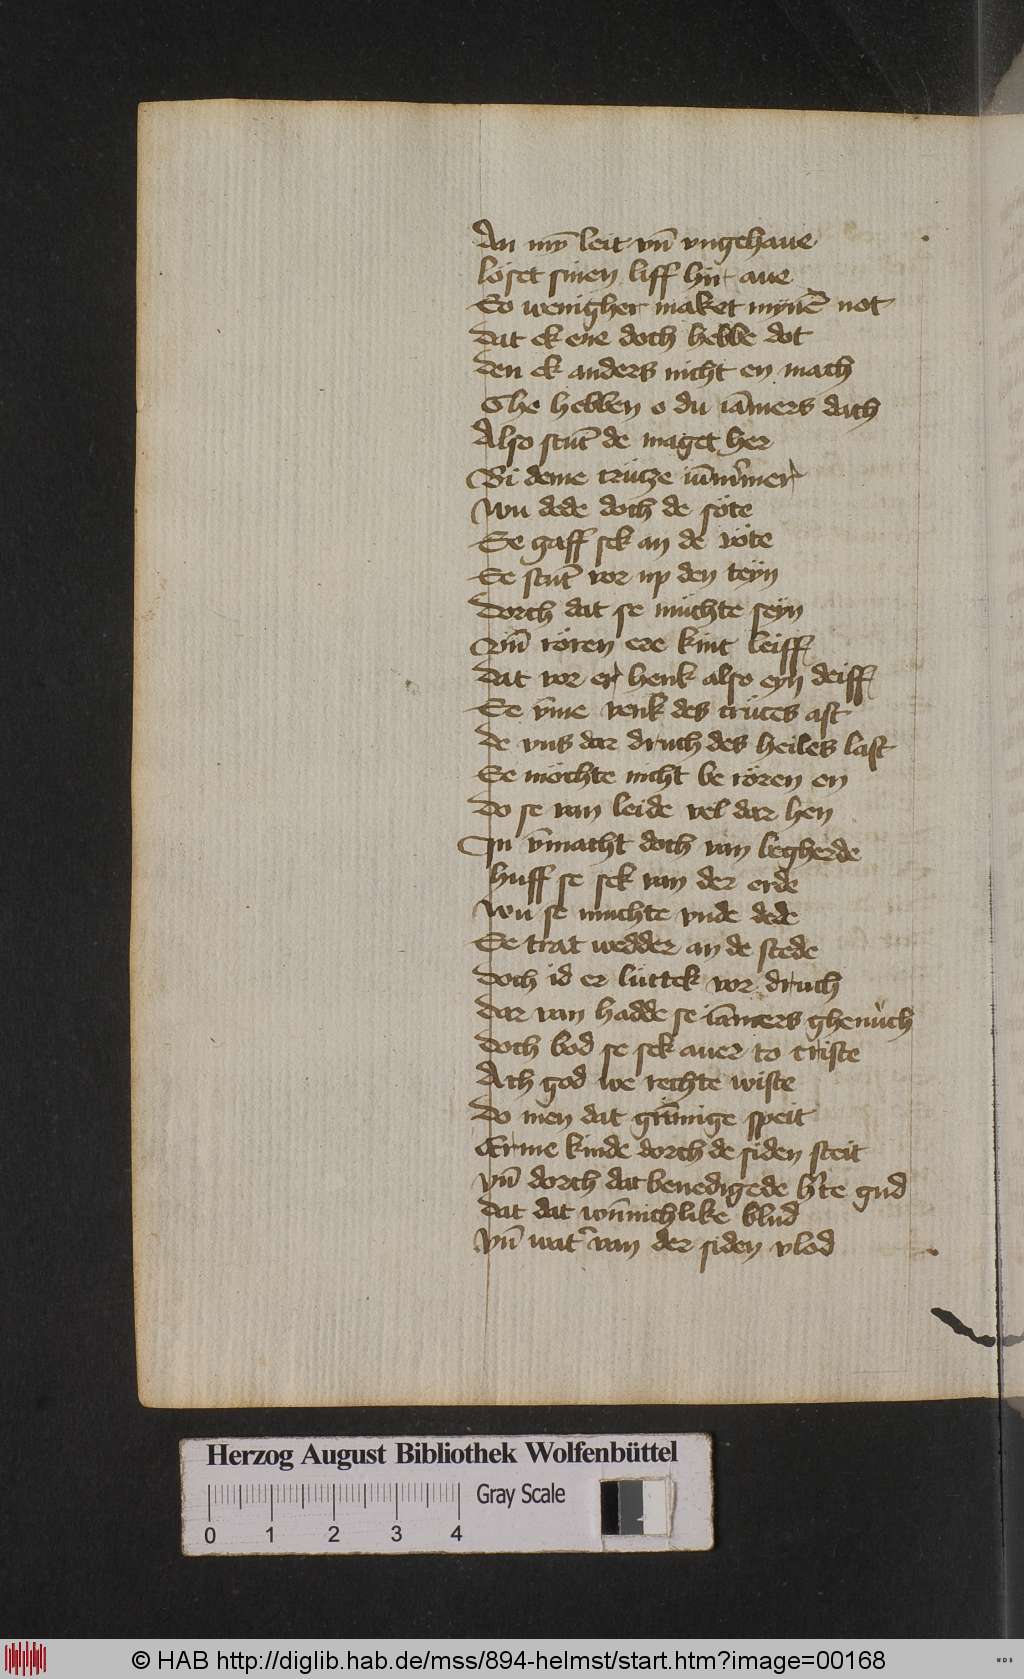 An my̅ leit vn̅ vngehaue
löset sinen liff hir aue
So wenigher maket myne̅ not
dat ek ene doch hebbe dot
den ek anders nicht en mach
Ghe hebben o du ia̅mers dach
Also stu̅t de maget her
Bi deme crütze
wu dede doch de söte
Se gaff sek an de vöte
Se stu̅t vor up den teyn
dorch dat se müchte seyn
vn̅ rören ere kint leiff
dat vor er henk also eyn deiff
Se v̅me venk des crüces ast
de vns dar druch des heiles last
Se möchte nicht be rören en
do se van leide vel dar hen
In v̅macht doch van begherde
huff se sek van der erde
wu se muchte vnde dede
Se trat wedder an de stede
doch id er lüttek vor druch
dar van hadde se ia̅mers ghenuch
doch bod se sek auer to criste
Ach god we rechte wiste
do men dat gri̅mige speit
Erme kinde dorch de siden steit
vn̅ dorch dat benedigede h̅te gud
dat dat wu̅nichlike blud
vn̅ wat̅ van der siden vlod
Herzog August Bibliothek Wolfenbüttel
Gray Scale
0 1 2 3 4
© HAB http://diglib.hab.de/mss/894-helmst/start.htm?image=00168